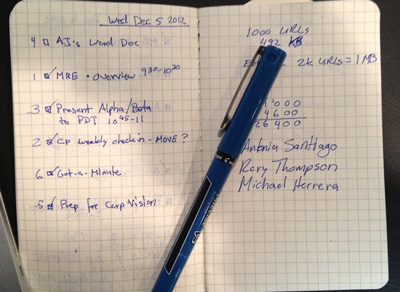 Wed Dec 5 2012
4 AJ's Word Doc
1 MRE - overview 930-1020
3 Present Alpha/Beta
to PDT 1045-11
2 Cp weekly checkin - MOVE ?
6 Got-a-Minute
5 Prep for Corp Vision
1000 URLs
492 KB
2k URLs = 1 MB
000
4600
26400
Antonia Santiago
Rory Thompson
Michael Herrera